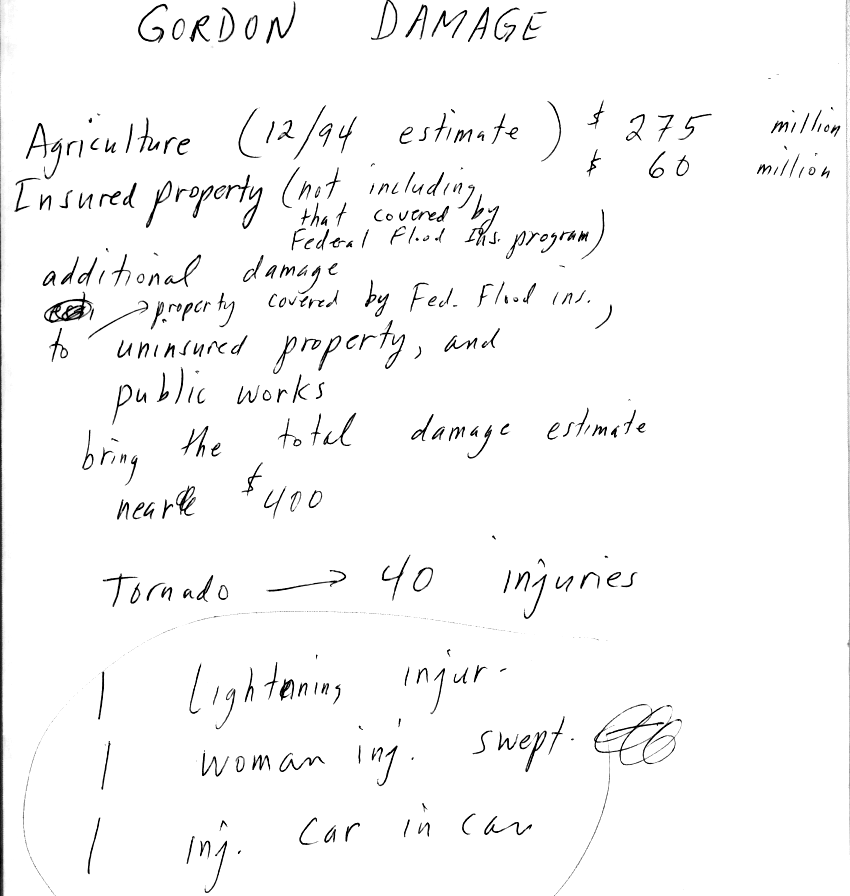 GORDON DAMAGE
Agriculture (12/94 estimate) $ 275 million
$ 60 million
Insured property (not including
that covered by
Federal Flood Ins. program)
additional damage
property covered by Fed. Flood ins.,
to uninsured property, and
public works
bring the total damage estimate
near $400
Tornado → 40 injuries
1 lightning injur-
1 woman inj. swept.
1 inj. car in